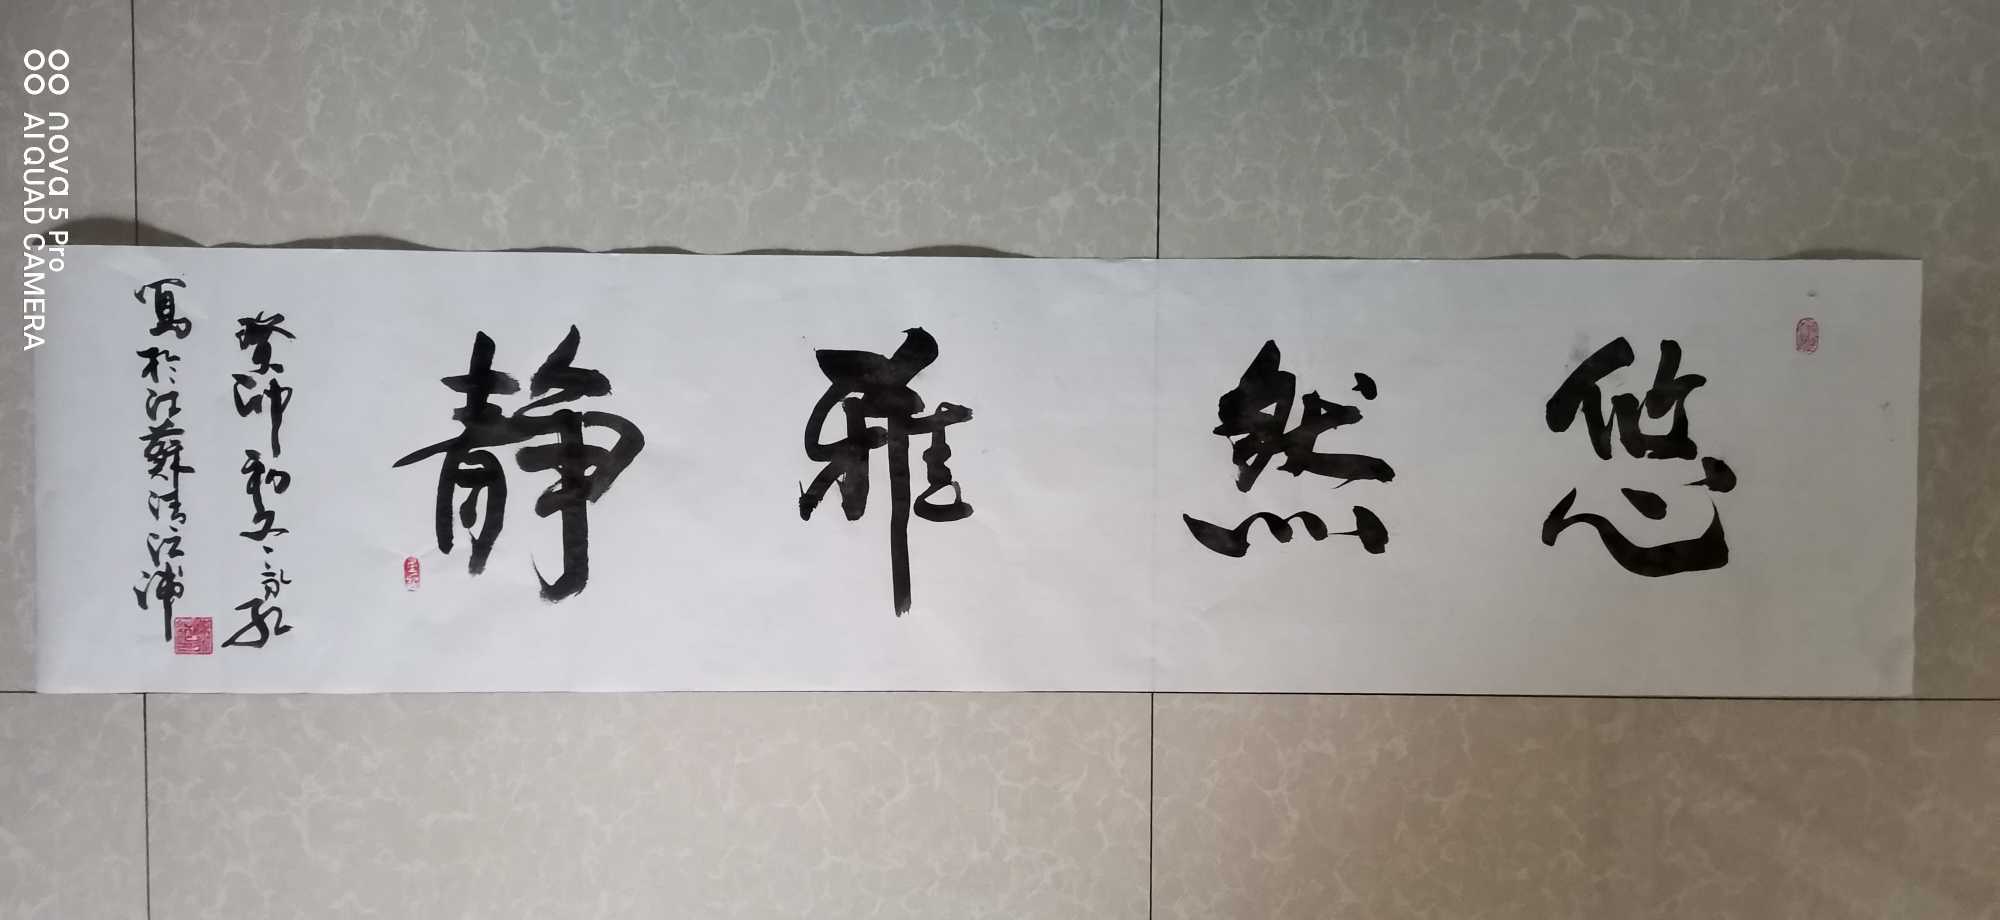 悠然雅静
癸卯初冬
寫於江蘇清江浦
nova 5 Pro
AI QUAD CAMERA